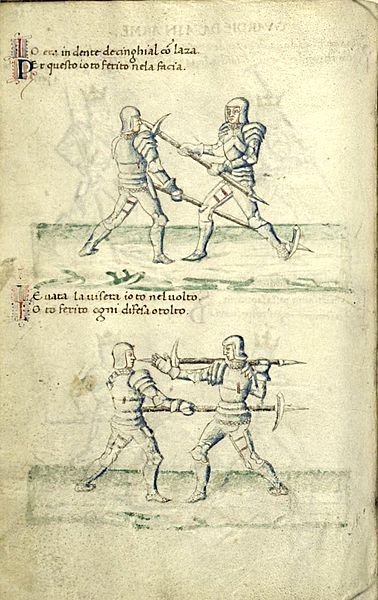 IO era in dente de cinghial cō laza.
PEr questo io to ferito nela facia.
LEvata la visera io to nel volto.
IO to ferito ogni difesa o tolto.